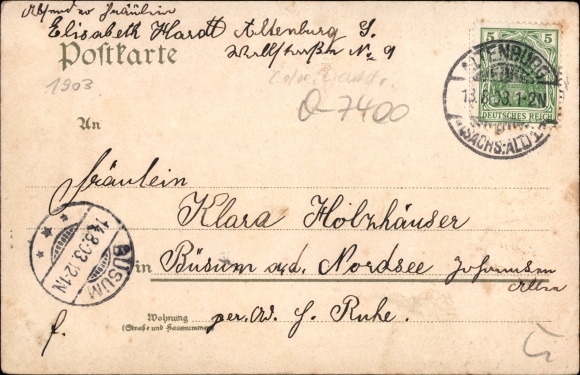 Absender Fräulein
Elisabeth Hardt Altenburg S.
Wallstraße No 9
Postkarte
1903
Q-7400
5 5
DEUTSCHES REICH
ALTENBURG
13.8.03.1-2N
(SACHS:ALT.) 1
An
Fräulein
Klara Holzhäuser
in Büsum a.d. Nordsee Johannsen
Allee
BÜSUM
14.8.03.12-1N
Wohnung
(Straße und Hausnummer)
per. Ad. H. Ruhe.
f.